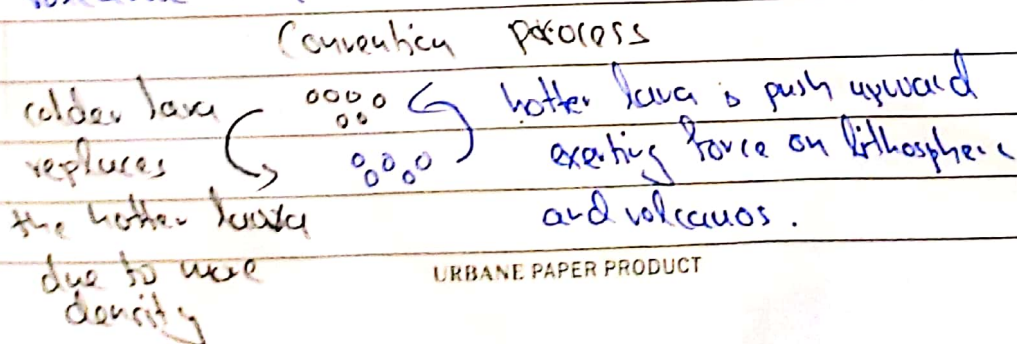 Convention process
colder lava
replaces
the hotter lava
due to more
density
hotter lava is push upward
exerting force on lithosphere
and volcanos.
URBANE PAPER PRODUCT